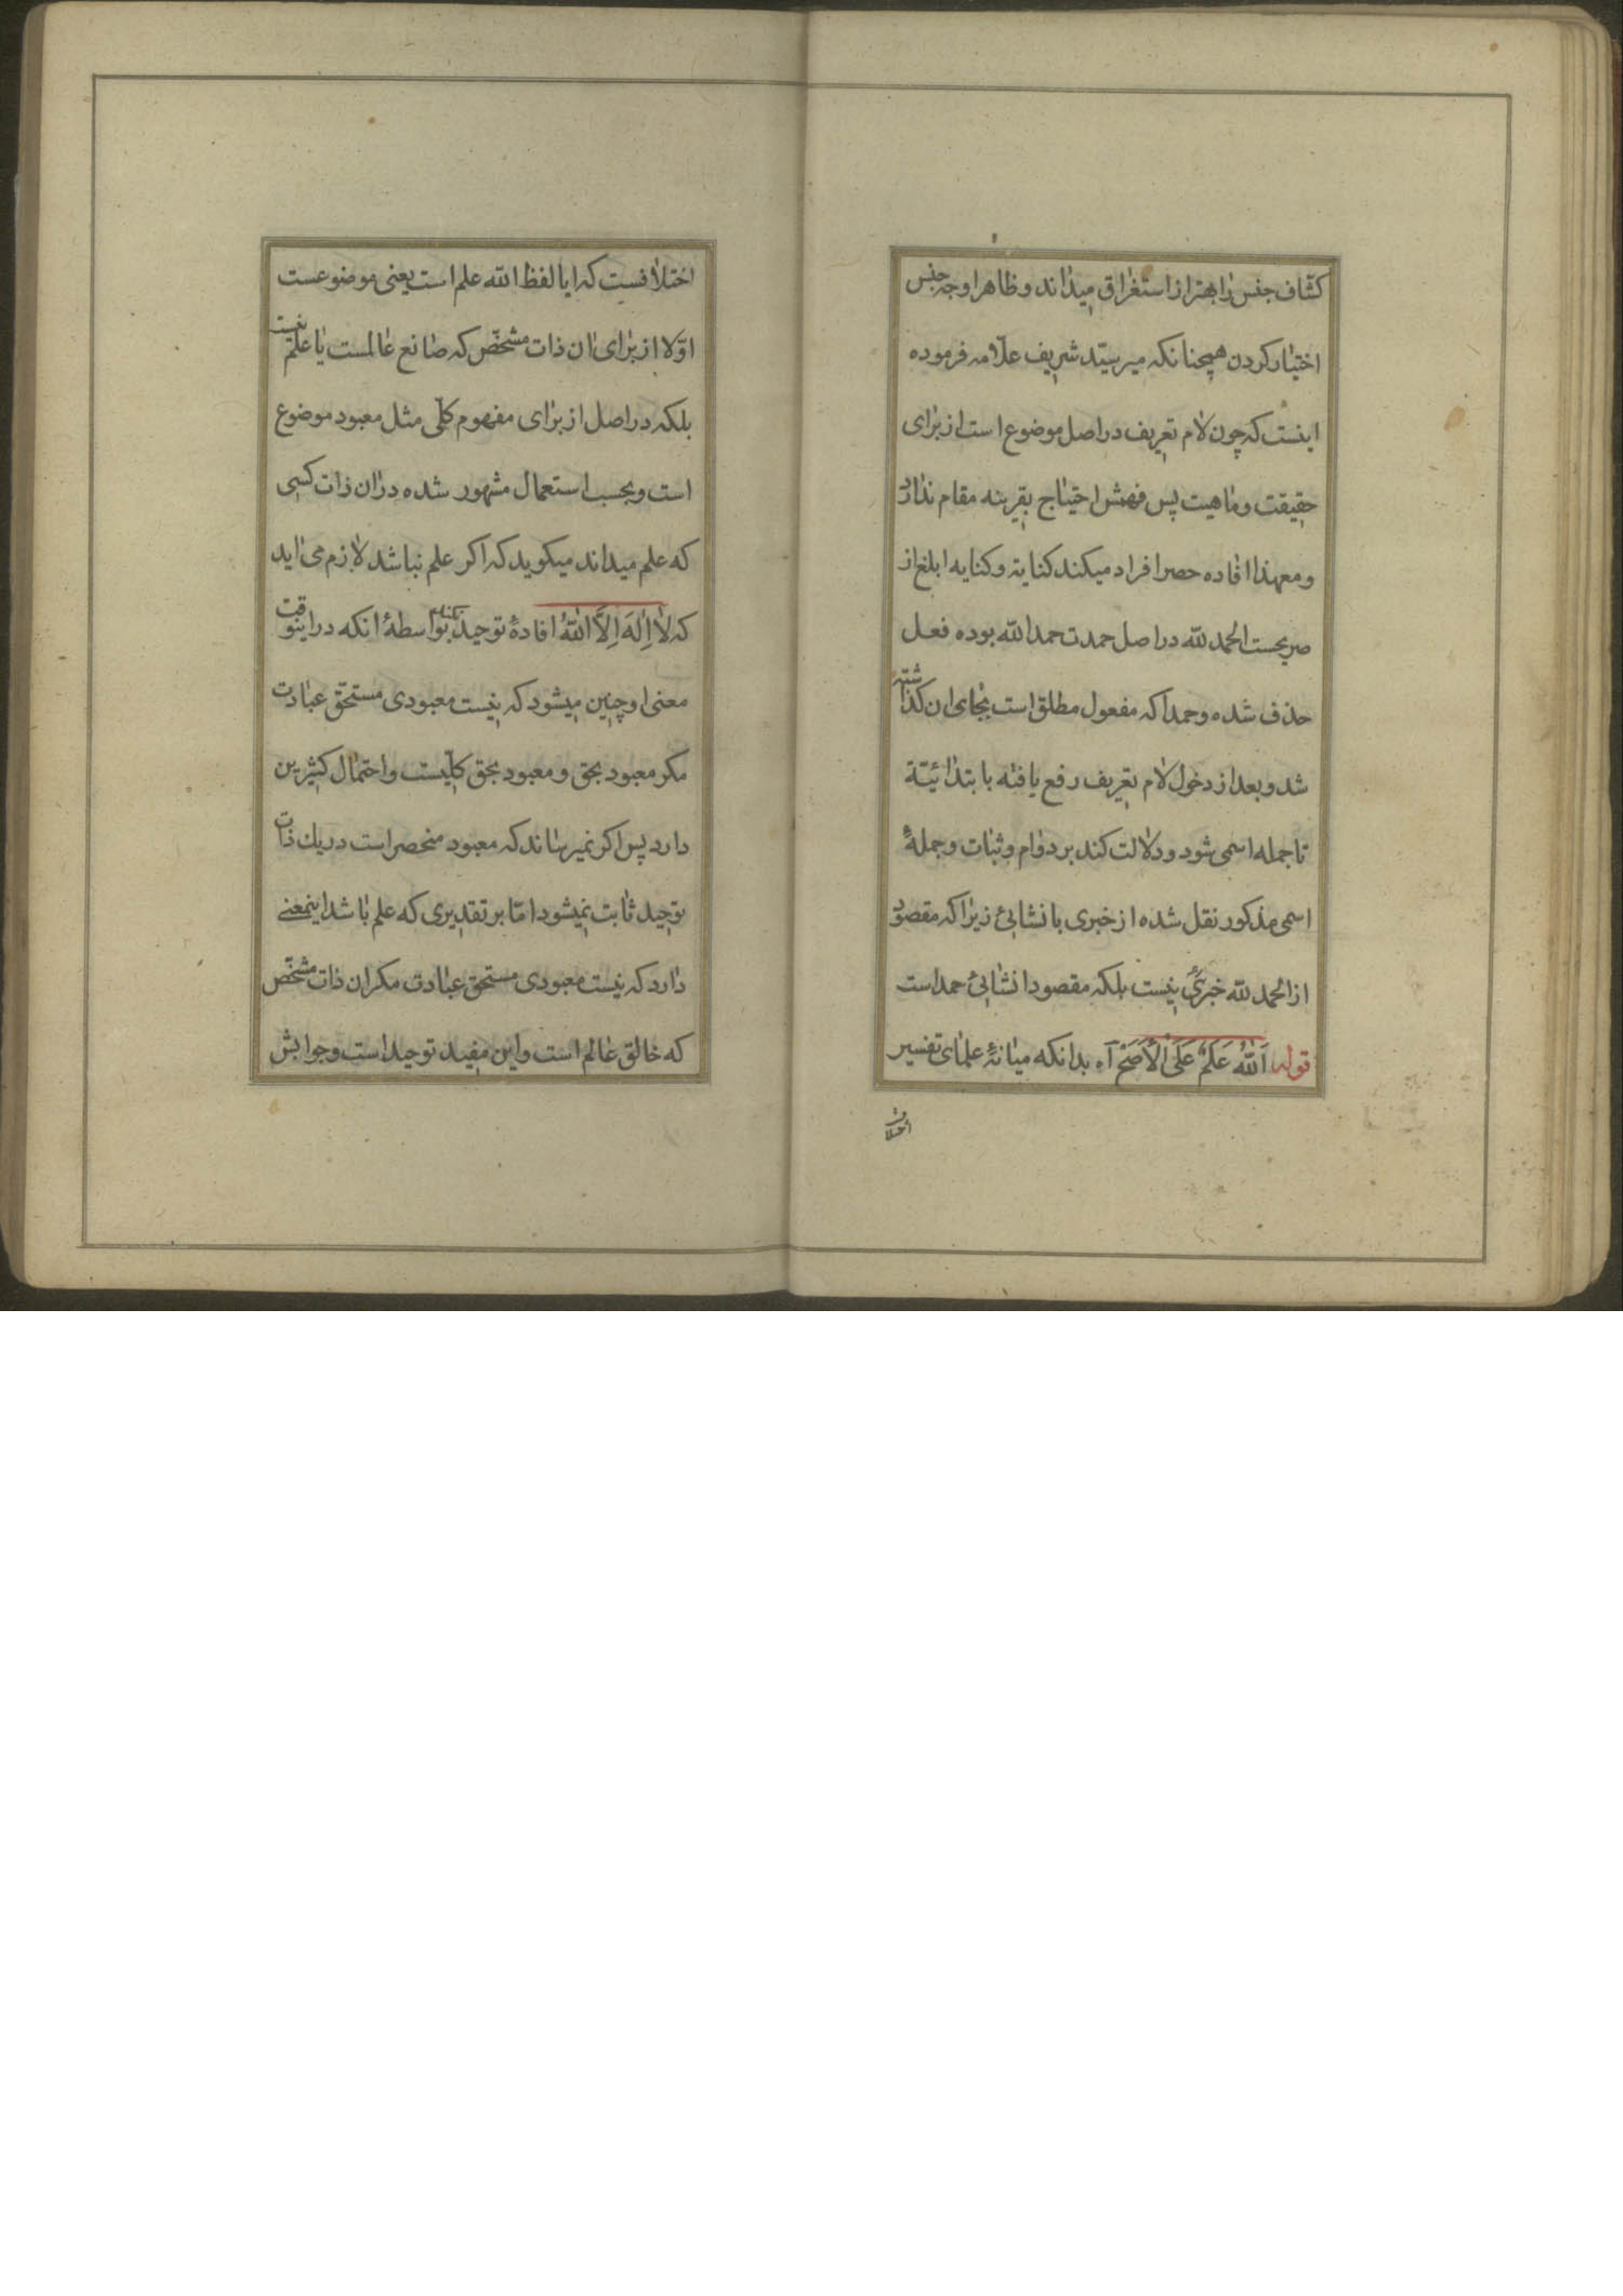 كشاف جنس را بهتر از استغراق میداند و ظاهرا وجه جنس
اختیار کردن همچنانکه میر سیّد شریف علّامه فرموده
اینست که چون لام تعریف در اصل موضوع است از برای
حقیقت و ماهیت پس فهمش احتیاج بقرینه مقام ندارد
و معهذا افاده حصر افراد میکند کنایة و کنایه ابلغ از
صریحست الحمد لله در اصل حمدت حمدا لله بوده فعل
حذف شده و حمدا که مفعول مطلق است بجای ان کذاشته
شد و بعد از دخول لام تعریف رفع یافته بابتدائیّة
تا جمله اسمی شود و دلالت کند بر دوام و ثبات و جملهٔ
اسمی مذکور نقل شده از خبری بانشایئ زیرا که مقصود
از الحمد لله خبری نیست بلکه مقصود انشایئ حمد است
قوله اَللّٰهُ عَلَمٌ عَلَی الْاَصَحّ آه بدانکه میانهٔ علمای تفسیر
اختلاف
اختلافست که ایا لفظ الله علم است یعنی موضوعست
اوّلا از برای ان ذات مشخّص که صانع عالمست یا علم نیست
بلکه در اصل از برای مفهوم کلّی مثل معبود موضوع
است و بحسب استعمال مشهور شده در ان ذات کسی
که علم میداند میکوید که اکر علم نباشد لازم می اید
که لَا اِلٰهَ اِلَّا اللّٰهُ افادهٔ توحید نکند بواسطهٔ انکه در اینوقت
معنی او چنین میشود که نیست معبودی مستحّق عبادت
مکر معبود بحق و معبود بحق کلّیست و احتمال کثیرین
دارد پس اکر نمیرساند که معبود منحصر است در یك ذات
توحید ثابت نمیشود امّا بر تقدیری که علم باشد اینمعنے
دارد که نیست معبودی مستحق عبادت مکر ان ذات مشخّص
که خالق عالم است و این مفید توحید است و جوابش